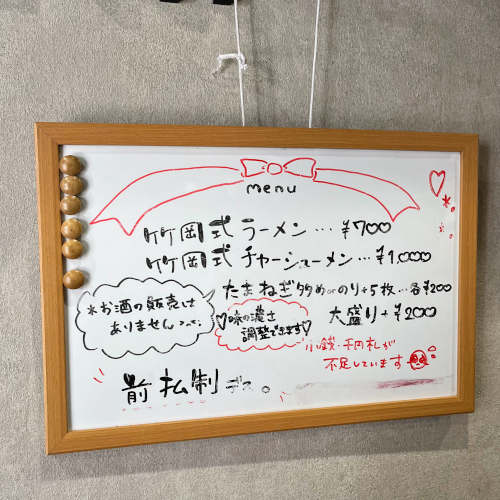 menu
竹岡式 ラーメン…¥700
竹岡式 チャーシューメン…¥1,000
たまねぎ多め or のり+5枚…各¥200
大盛り+¥200
※お酒の販売は
ありません
♡味の濃さ
調整できます♡
小銭・千円札が
不足しています
前払制デス。